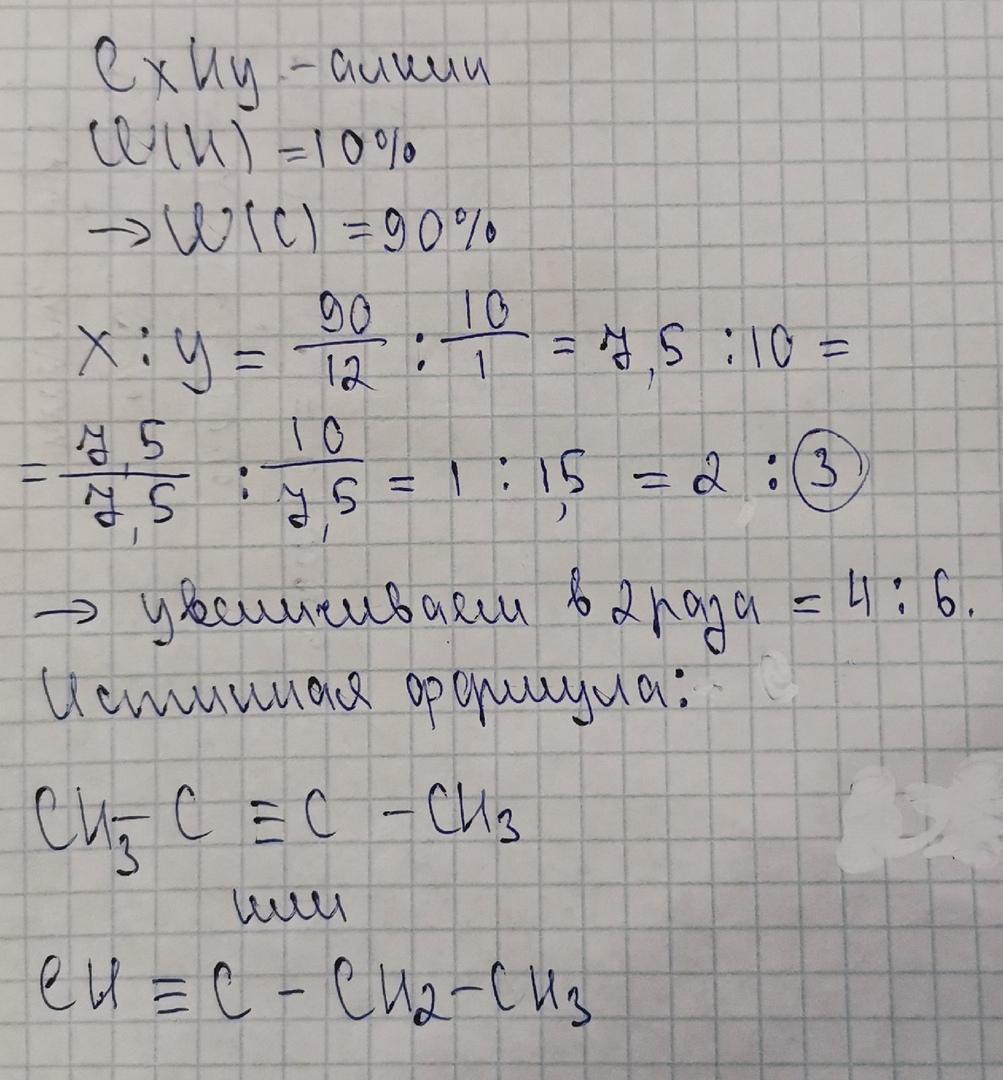 CxHy - алкин
W(H) = 10%
→ W(C) = 90%
x : y = 90/12 : 10/1 = 7,5 : 10 =
= 7,5/7,5 : 10/7,5 = 1 : 1,5 = 2 : 3
→ увеличиваем в 2 раза = 4 : 6.
Истинная формула:
CH3 - C ≡ C - CH3
или
CH ≡ C - CH2 - CH3